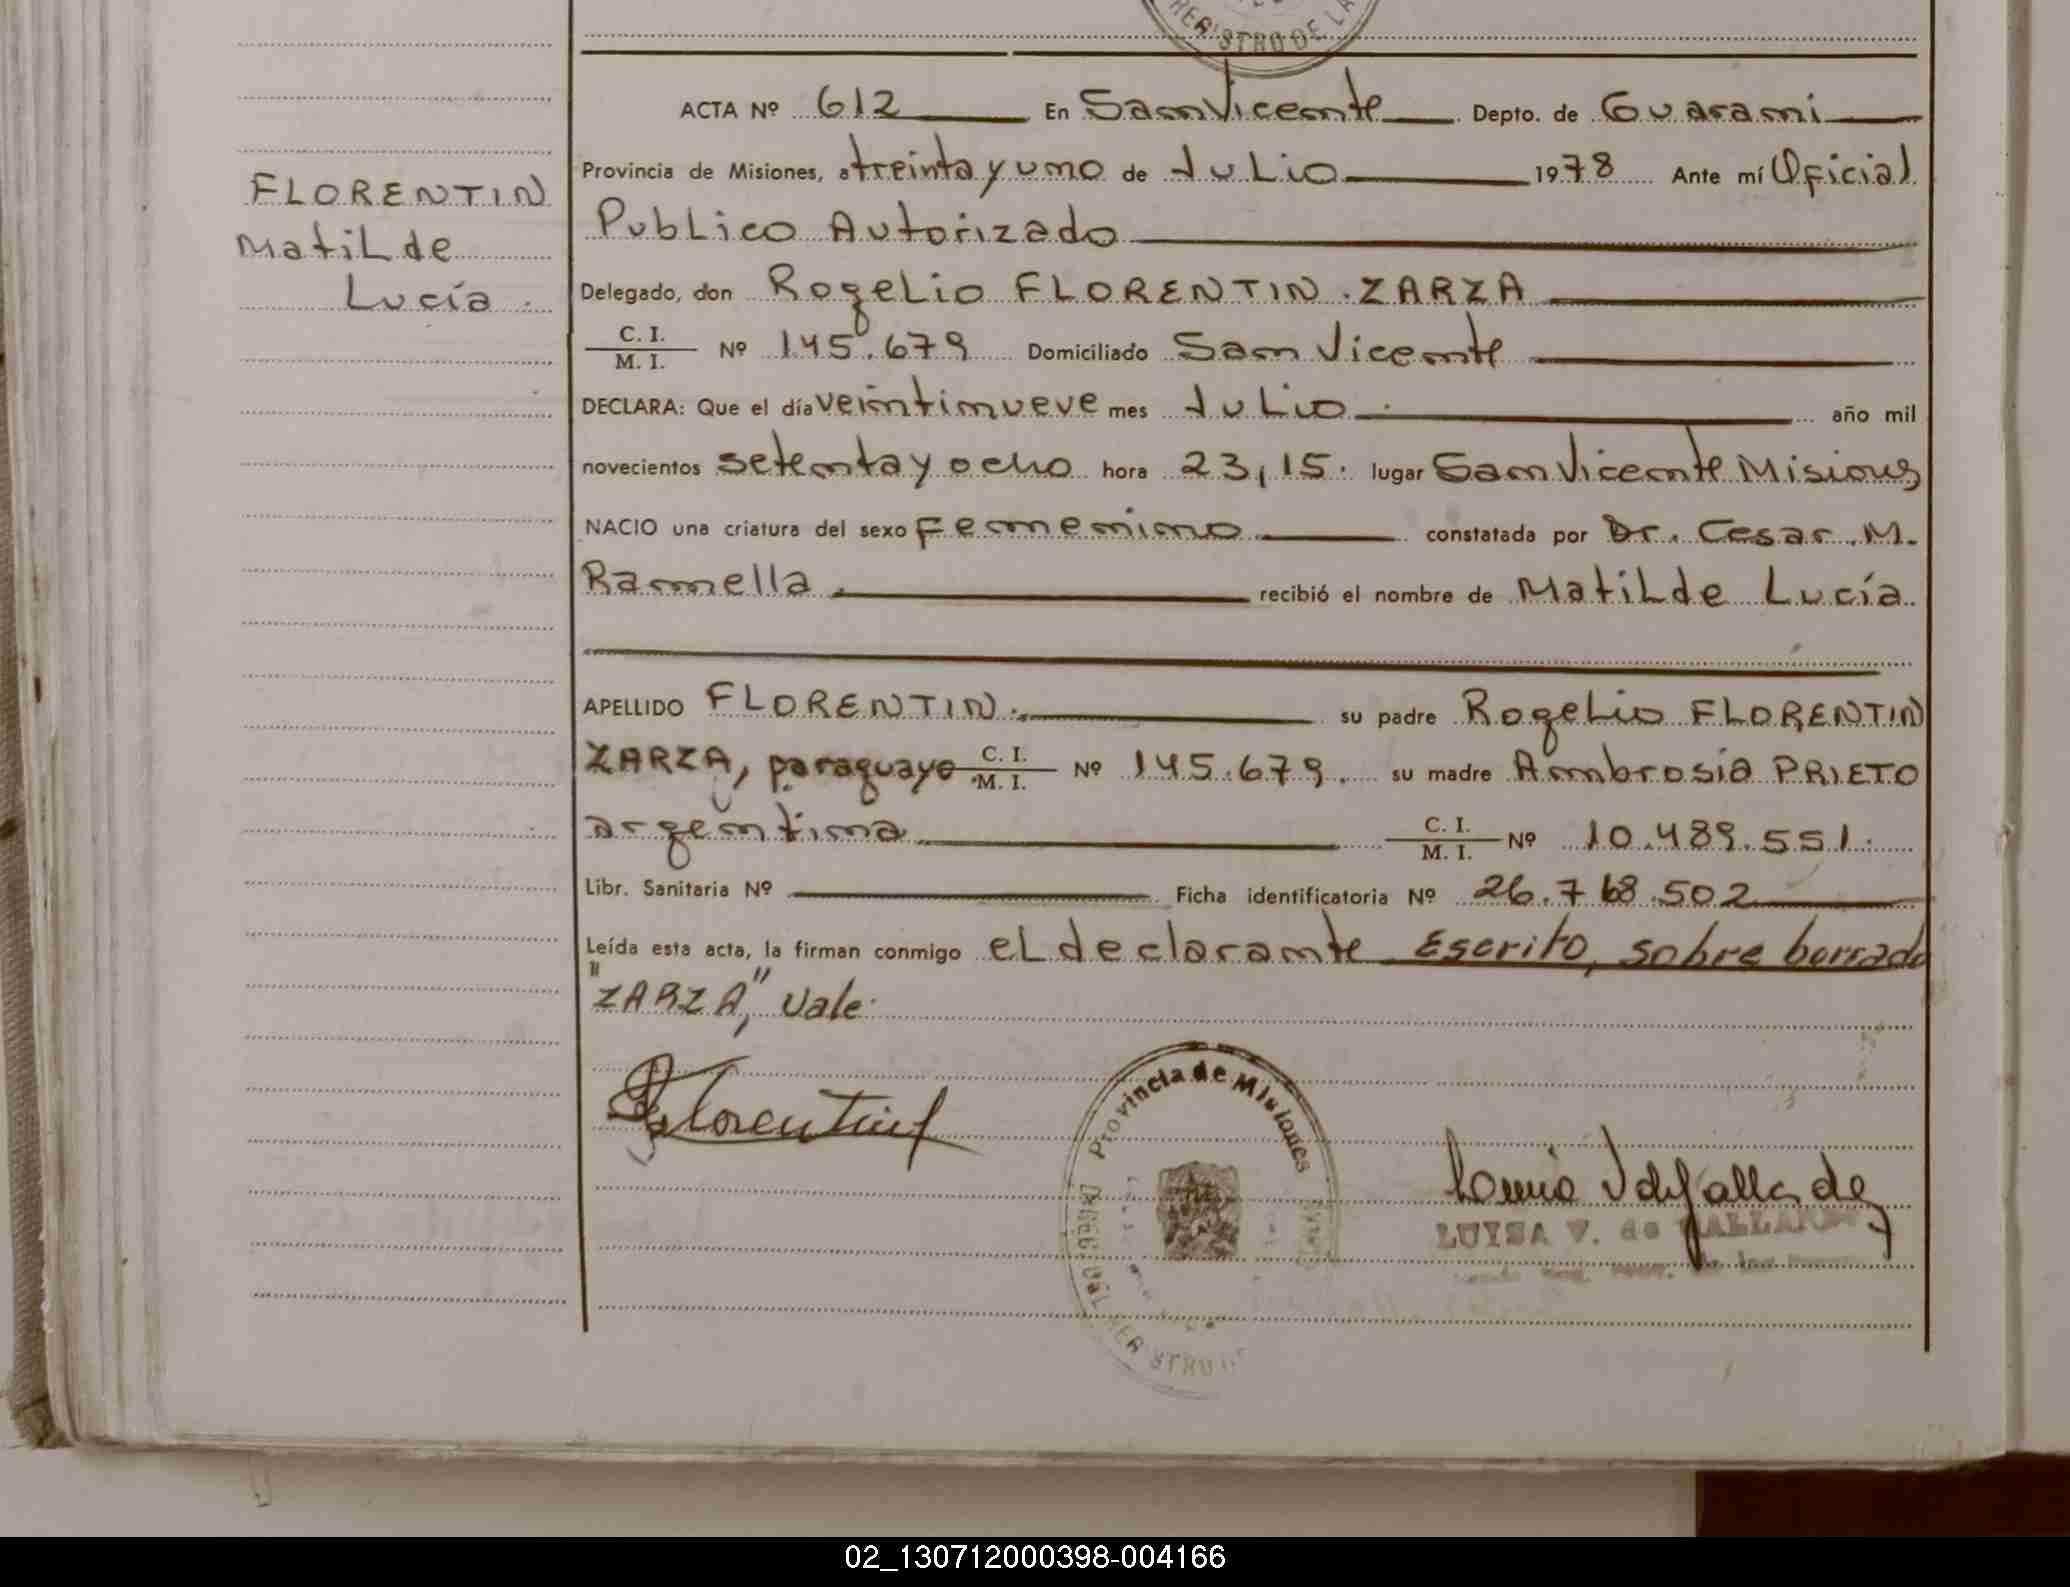 REGISTRO DE LA
ACTA Nº 612 En San Vicente Depto. de Guarani
Provincia de Misiones, a treinta y uno de Julio 1978 Ante mí Oficial
Publico Autorizado
FLORENTIN
Matilde
Lucía.
Delegado, don Rogelio FLORENTIN ZARZA
C. I.
M. I. Nº 145.679 Domiciliado San Vicente
DECLARA: Que el día veintinueve mes Julio año mil
novecientos setenta y ocho hora 23,15. lugar San Vicente Misiones
NACIO una criatura del sexo femenino constatada por Dr. Cesar M.
Ramella recibió el nombre de Matilde Lucía.
APELLIDO FLORENTIN. su padre Rogelio FLORENTIN
ZARZA, paraguayo C. I.
M. I. Nº 145.679. su madre Ambrosia PRIETO
argentina C. I.
M. I. Nº 10.489.551.
Libr. Sanitaria Nº Ficha identificatoria Nº 26.768.502
Leída esta acta, la firman conmigo el declarante Escrito, sobre borrado
"ZARZA", vale.
Florentin
Provincia de Misiones
LUISA V. de
02_130712000398-004166